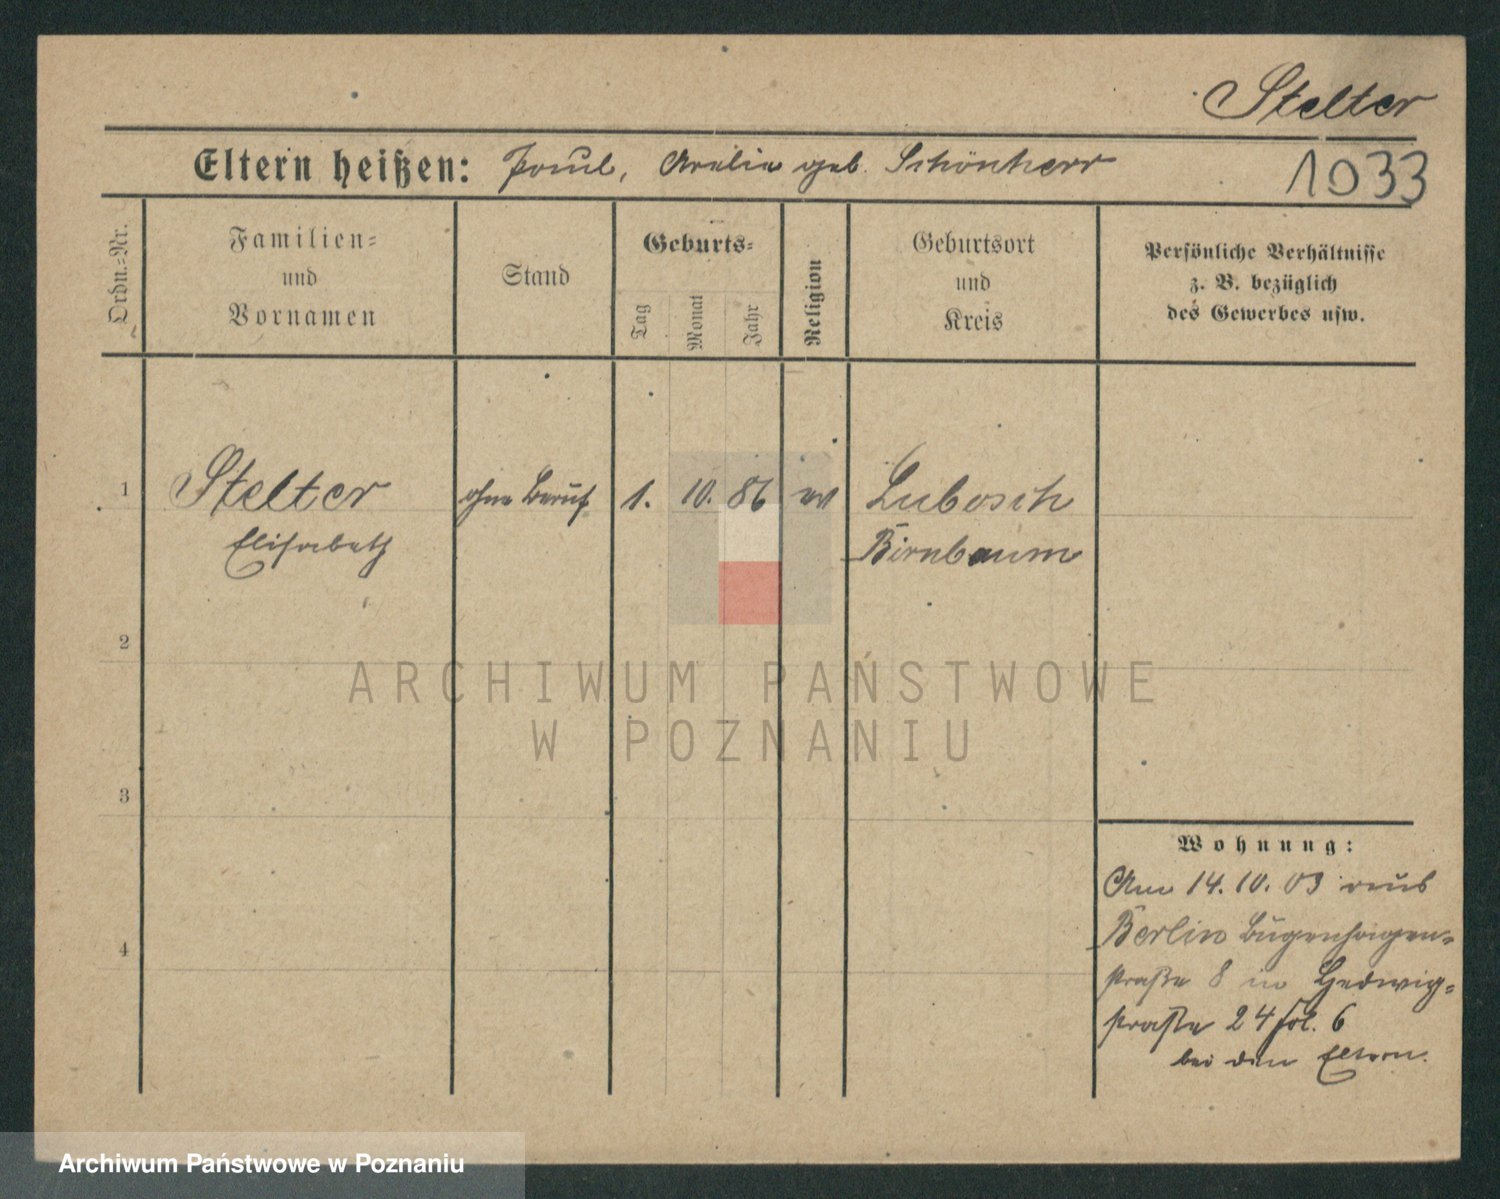 Stelter
Eltern heißen: Paul, Amalie geb. Schönherr
1033
Ordn.=Nr.
Familien=
und
Vornamen
Stand
Geburts=
Tag
Monat
Jahr
Religion
Geburtsort
und
Kreis
Persönliche Verhältnisse
z. B. bezüglich
des Gewerbes usw.
1
Stelter ohne Beruf 1. 10. 86 ev Lubosch
Elisabeth Birnbaum
2
3
4
Wohnung:
Am 14. 10. 03 aus
Berlin Bugenhagen=
straße 8 in Hedwig=
straße 24 fol. 6
bei den Eltern.
ARCHIWUM PAŃSTWOWE
W POZNANIU
Archiwum Państwowe w Poznaniu